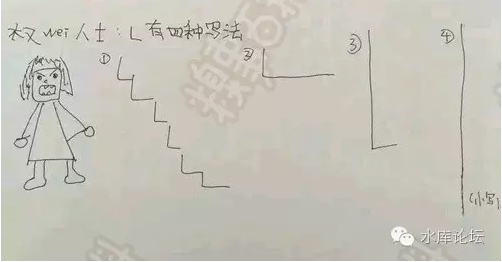 权wei人士：L有四种写法
①
②
③
④
(小写)
水库论坛